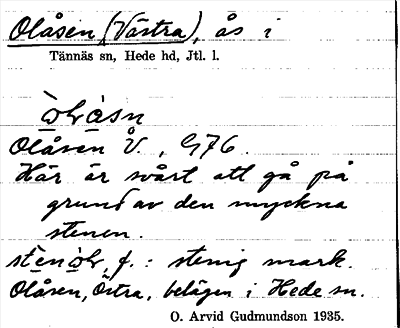 Olåsen (Västra), ås i
Tännäs sn, Hede hd, Jtl. l.
Olåsen V., 976.
Här är svårt att gå på
grund av den myckna
stenen.
f.: stenig mark.
Olåsen, Östra, belägen i Hede sn.
O. Arvid Gudmundson 1935.